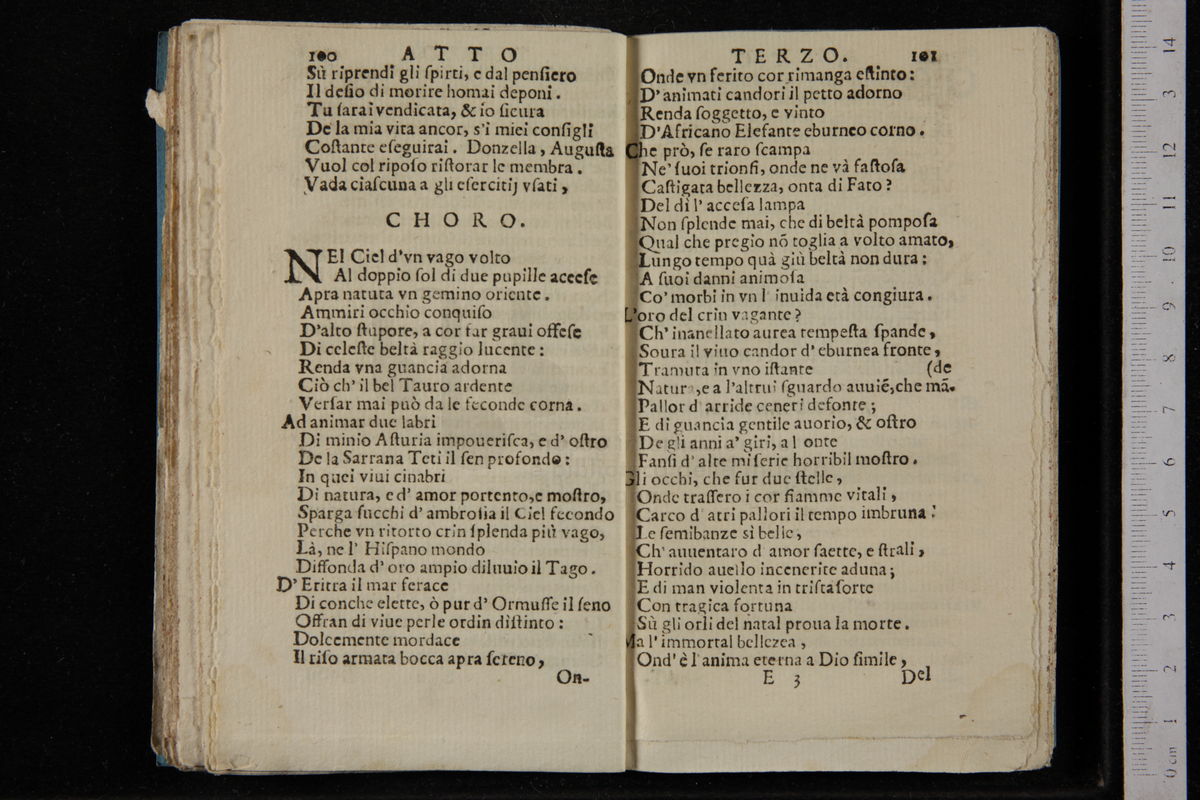 100 ATTO
Sù riprendi gli ſpirti, e dal penſiero
Il deſio di morire homai deponi.
Tu ſarai vendicata, & io ſicura
De la mia vita ancor, s'i miei conſigli
Coſtante eſeguirai. Donzella, Auguſta
Vuol col ripoſo riſtorar le membra.
Vada ciaſcuna a gli eſercitij vſati,
CHORO.
NEl Ciel d'vn vago volto
Al doppio ſol di due pupille acceſe
Apra natura vn gemino oriente.
Ammiri occhio conquiſo
D'alto ſtupore, a cor far graui offeſe
Di celeſte beltà raggio lucente:
Renda vna guancia adorna
Ciò ch' il bel Tauro ardente
Verſar mai può da le feconde corna.
Ad animar due labri
Di minio Aſturia impoueriſca, e d' oſtro
De la Sarrana Teti il ſen profondo:
In quei viui cinabri
Di natura, e d' amor portento,e moſtro,
Sparga ſucchi d' ambroſia il Ciel fecondo
Perche vn ritorto crin ſplenda più vago,
Là, ne l' Hiſpano mondo
Diffonda d' oro ampio diluuio il Tago.
D' Eritra il mar ferace
Di conche elette, ò pur d' Ormuſſe il ſeno
Offran di viue perle ordin diſtinto:
Dolcemente mordace
Il riſo armata bocca apra ſereno,
On-
TERZO. 101
Onde vn ferito cor rimanga eſtinto:
D' animati candori il petto adorno
Renda ſoggetto, e vinto
D'Africano Elefante eburneo corno.
Che prò, ſe raro ſcampa
Ne' ſuoi trionfi, onde ne và faſtoſa
Caſtigata bellezza, onta di Fato?
Del dì l' acceſa lampa
Non ſplende mai, che di beltà pompoſa
Qual che pregio nõ toglia a volto amato,
Lungo tempo quà giù beltà non dura:
A ſuoi danni animoſa
Co' morbi in vn l' inuida età congiura.
L'oro del crin vagante?
Ch' inanellato aurea tempeſta ſpande,
Soura il viuo candor d' eburnea fronte,
Tramuta in vno iſtante (de
Natura,e a l'altrui ſguardo auuiẽ,che mã-
Pallor d' arride ceneri defonte;
E di guancia gentile auorio, & oſtro
De gli anni a' giri, a l onte
Fanſi d' alte miſerie horribil moſtro.
Gli occhi, che fur due ſtelle,
Onde traſſero i cor fiamme vitali,
Carco d' atri pallori il tempo imbruna:
Le ſembianze sì belle,
Ch' auuentaro d' amor ſaette, e ſtrali,
Horrido auello incenerite aduna;
E di man violenta in triſta ſorte
Con tragica fortuna
Sù gli orli del natal proua la morte.
Ma l' immortal bellezza,
Ond' è l' anima eterna a Dio ſimile,
E 3 Del
0 cm 1 2 3 4 5 6 7 8 9 10 11 12 13 14